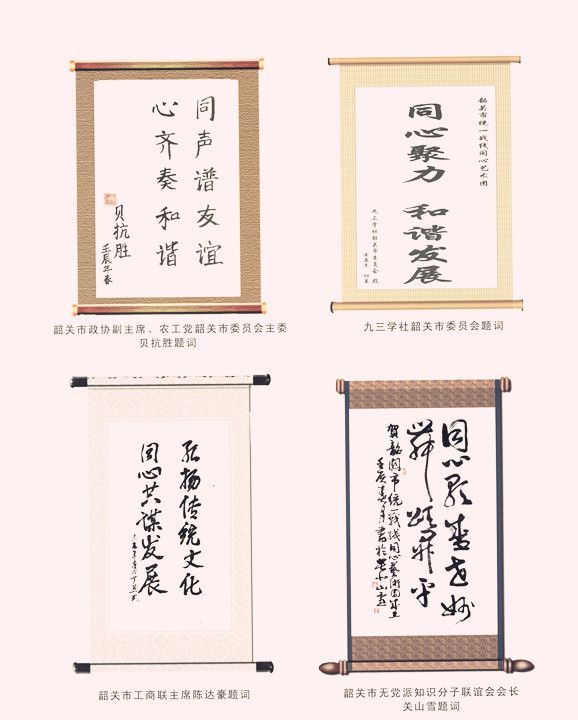 同声谱友谊
心齐奏和谐
贝抗胜
壬辰年春
韶关市政协副主席、农工党韶关市委员会主委
贝抗胜题词
韶关市统一战线同心艺术团
同心聚力 和谐发展
九三学社韶关市委员会 题
九三学社韶关市委员会题词
弘扬传统文化
同心共谋发展
韶关市工商联主席陈达豪题词
同心歌盛世妙
舞颂升平
贺韶関市统一战线同心藝術团成立
韶关市无党派知识分子联谊会会长
关山雪题词